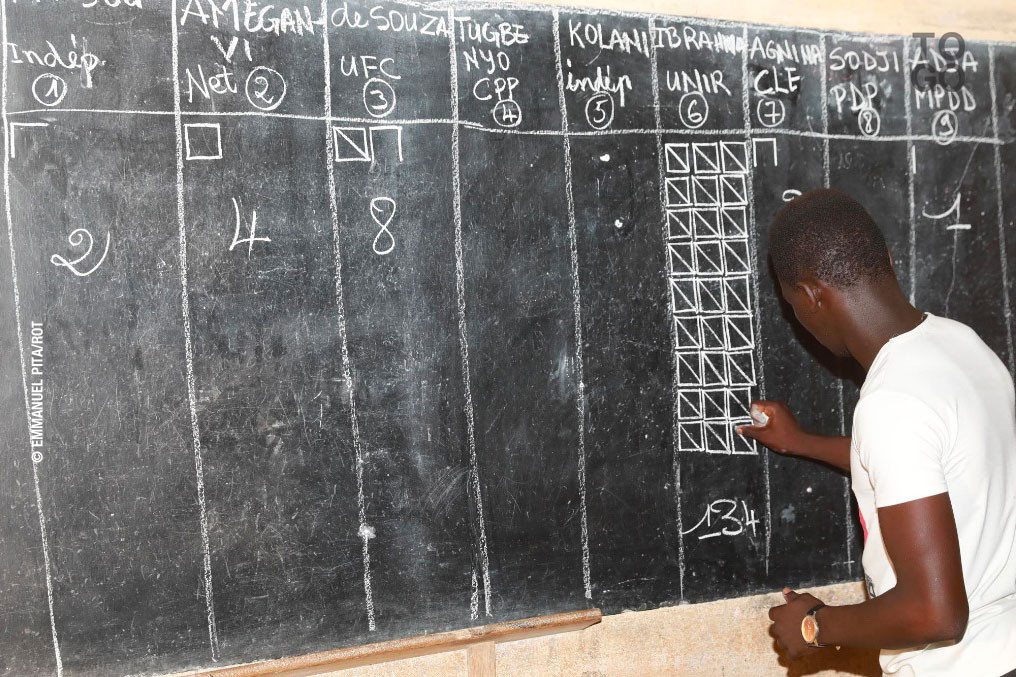 Indép
1
AMEGAN-
VI
Net 2
de SOUZA
UFC
3
TUGBE
NYO
CPP
4
KOLANI
indép
5
IBRAHIMA
UNIR
6
AGNINA
CLE
7
SODJI
PDP
8
MPDD
9
TO
GO
2
4
8
1
134
© EMMANUEL PITA/ROT